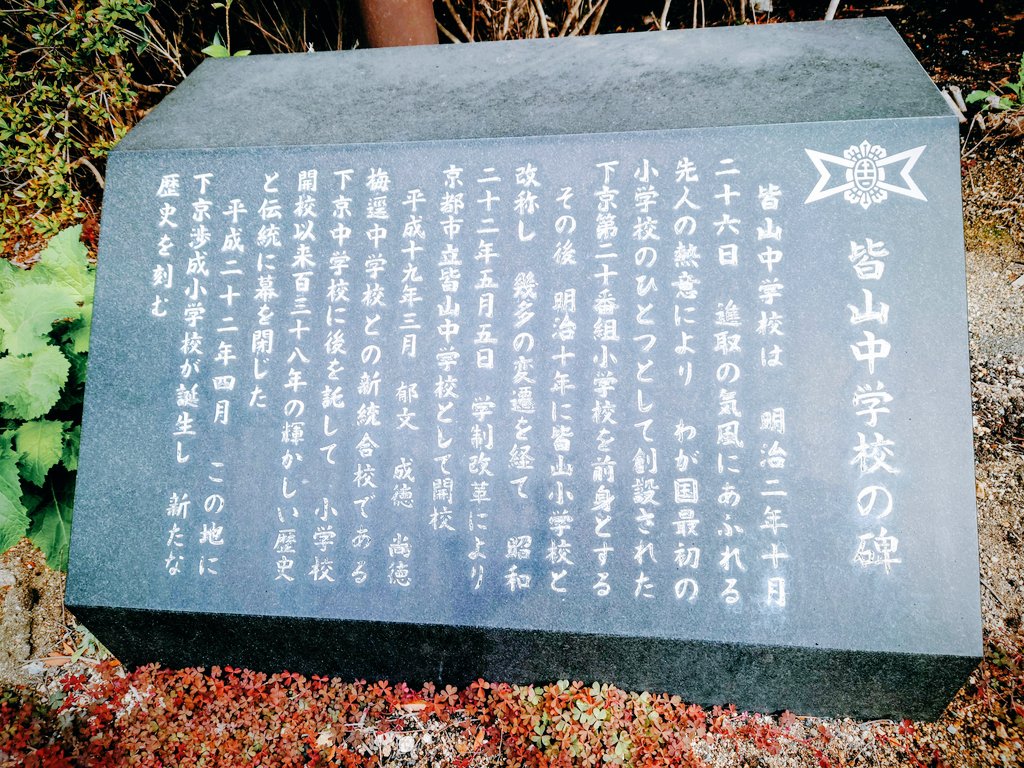 皆山中学校の碑
皆山中学校は 明治二年十月
二十六日 進取の気風にあふれる
先人の熱意により わが国最初の
小学校のひとつとして創設された
下京第二十番組小学校を前身とする
その後 明治十年に皆山小学校と
改称し 幾多の変遷を経て 昭和
二十二年五月五日 学制改革により
京都市立皆山中学校として開校
平成十九年三月 郁文 成徳 尚徳
梅逕中学校との新統合校である
下京中学校に後を託して 小学校
開校以来百三十八年の輝かしい歴史
と伝統に幕を閉じた
平成二十二年四月 この地に
下京渉成小学校が誕生し 新たな
歴史を刻む